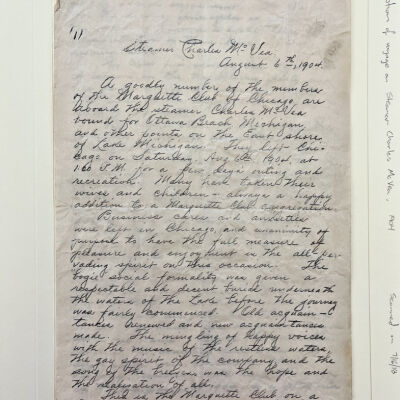 11
Steamer Charles McVea
August 6th, 1904.
A goodly number of the members
of the Marquette Club of Chicago, are
aboard the steamer Charles McVea
bound for Ottawa Beach, Michigan
and other points on the East shore
of Lake Michigan. They left Chi-
cago on Saturday, Aug 6th 1904, at
1:00 P.M. for a few days outing and
recreation. Many have taken their
wives and children – always a happy
addition to a Marquette Club congregation.
Business cares and anxieties
were left in Chicago, and unanimity of
purpose to have the full measure of
pleasure and enjoyment is the all per-
vading spirit on this occasion. The
bogie social formality was given a
respectable and decent burial underneath
the waters of the Lake before the journey
was fairly commenced. Old acquain-
tances renewed and new acquaintances
made. The mingling of happy voices
with the music of the restless waters,
the gay spirit of the company and the
song of the was the hope and
the realization of all.
This is the Marquette Club on a
of voyage on Steamer Charles McVea, MOH
Scanned on 7/6/18